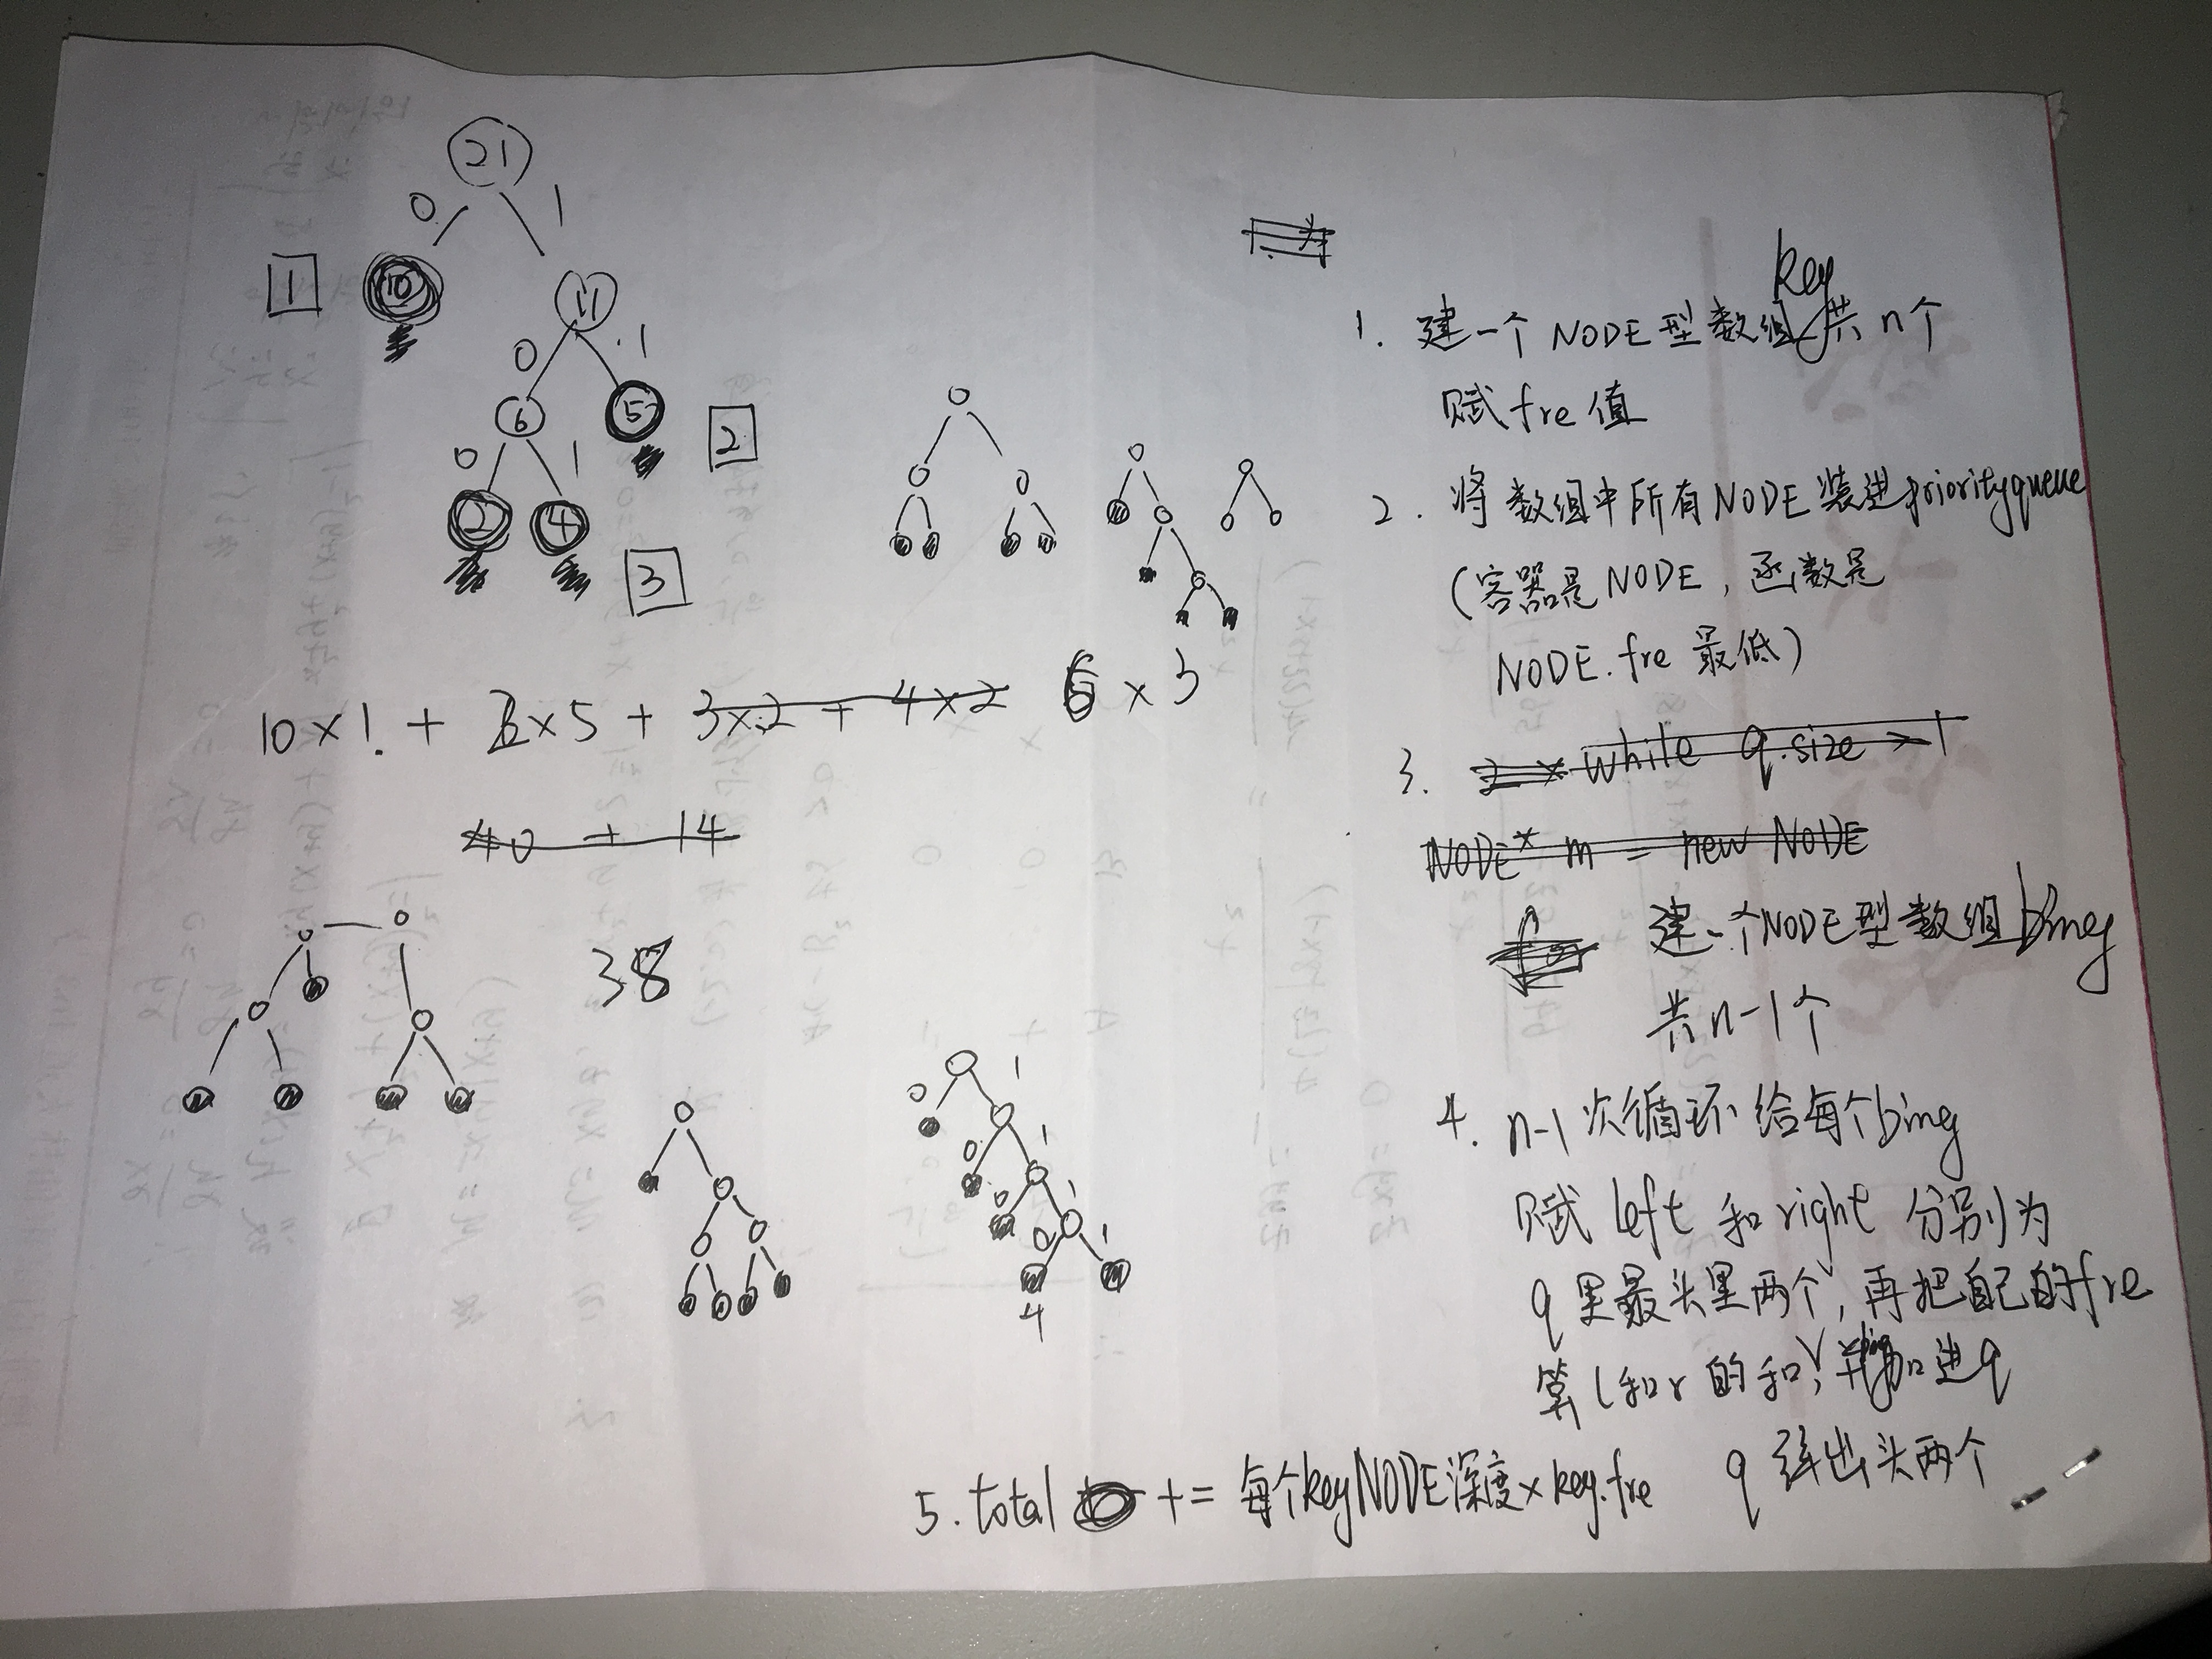 21
0 1
1 10 11
0 1
6 5 2
0 1
2 4 3
10×1 + 2×5 + 3×2 + 4×2 6×3
40 + 14
38
0 1
0 1
0 1
0 1
4
key
1. 建一个NODE型数组 共n个
赋fre值
2. 将数组中所有NODE装进priorityqueue
(容器是NODE, 函数是
NODE.fre最低)
3. while q.size > 1
NODE* m = new NODE
建一个NODE型数组bing
共n-1个
4. n-1次循环给每个bing
赋left和right分别为
q里最头里两个, 再把自己的fre
算l和r的和, 加进q
q 弹出头两个
5. total += 每个keyNODE深度×key.fre